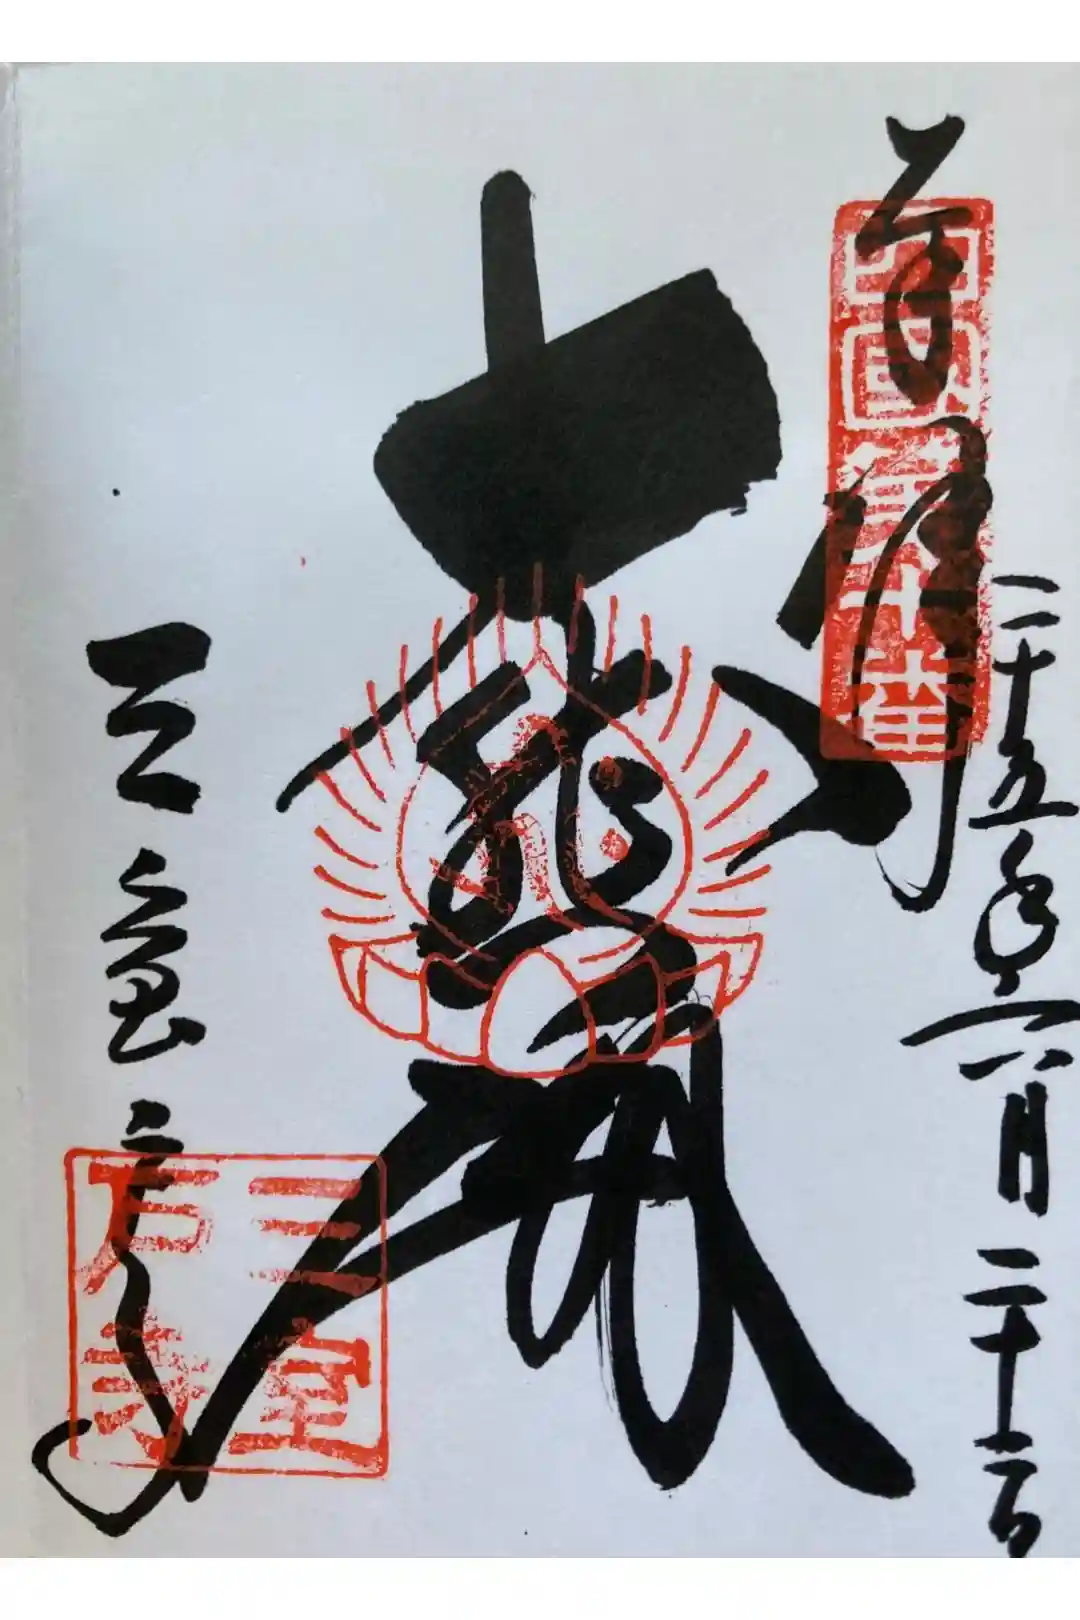 奉拝
西國第十番
二十五年六月二十三日
大悲殿
三室戸寺
三室戸寺